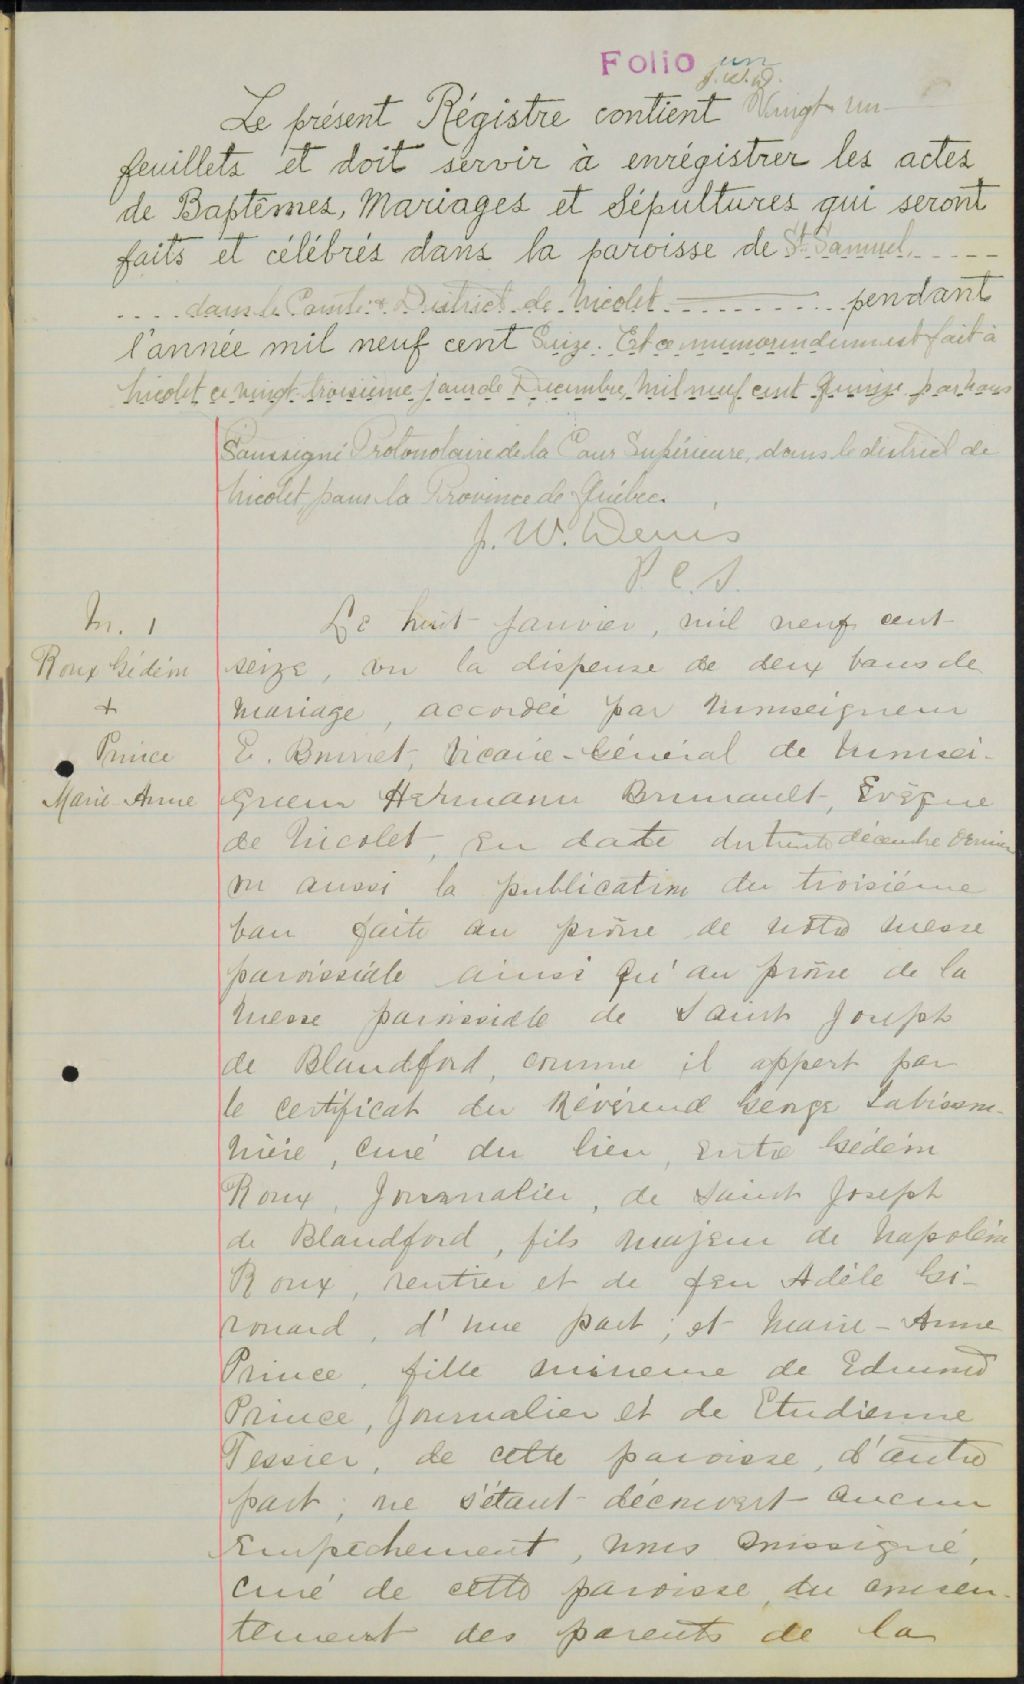 Folio un
J. W. D.
Le présent Régistre contient Vingt un
feuillets et doit servir à enrégistrer les actes
de Baptêmes, Mariages et Sépultures qui seront
faits et célébrés dans la paroisse de St Samuel,
dans le Comté & District de Nicolet pendant
l'année mil neuf cent Seize. Et ce memorendum est fait à
Nicolet ce vingt-troisième jour de Decembre, mil neuf cent Quinze par nous
Soussigné Protonotaire de la Cour Supérieure, dans le district de
Nicolet, pour la Province de Québec.
J. W. Denis
P. C. S.
M. 1
Roux Gédéon
+
Prince
Marie-Anne
Le huit Janvier, mil neuf cent
seize, vu la dispense de deux bans de
mariage, accordée par Monseigneur
E. Brunet, Vicaire-Général de Monsei-
gneur Hermann Brunault, Evêque
de Nicolet, en date du trente décembre dernier
vu aussi la publication du troisième
ban faite au prône de notre messe
paroissiale ainsi qu'au prône de la
messe paroissiale de Saint Joseph
de Blandford, comme il appert par
le certificat du Révérend George Labisson-
nière, curé du lieu, entre Gédéon
Roux, Journalier, de Saint Joseph
de Blandford, fils majeur de Napoléon
Roux, rentier et de feu Adèle Gi-
rouard, d'une part; et Marie-Anne
Prince, fille mineure de Edmond
Prince, Journalier et de Etudienne
Tessier, de cette paroisse, d'autre
part; ne s'étant découvert aucun
empêchement, nous soussigné,
curé de cette paroisse, du consen-
tement des parents de la